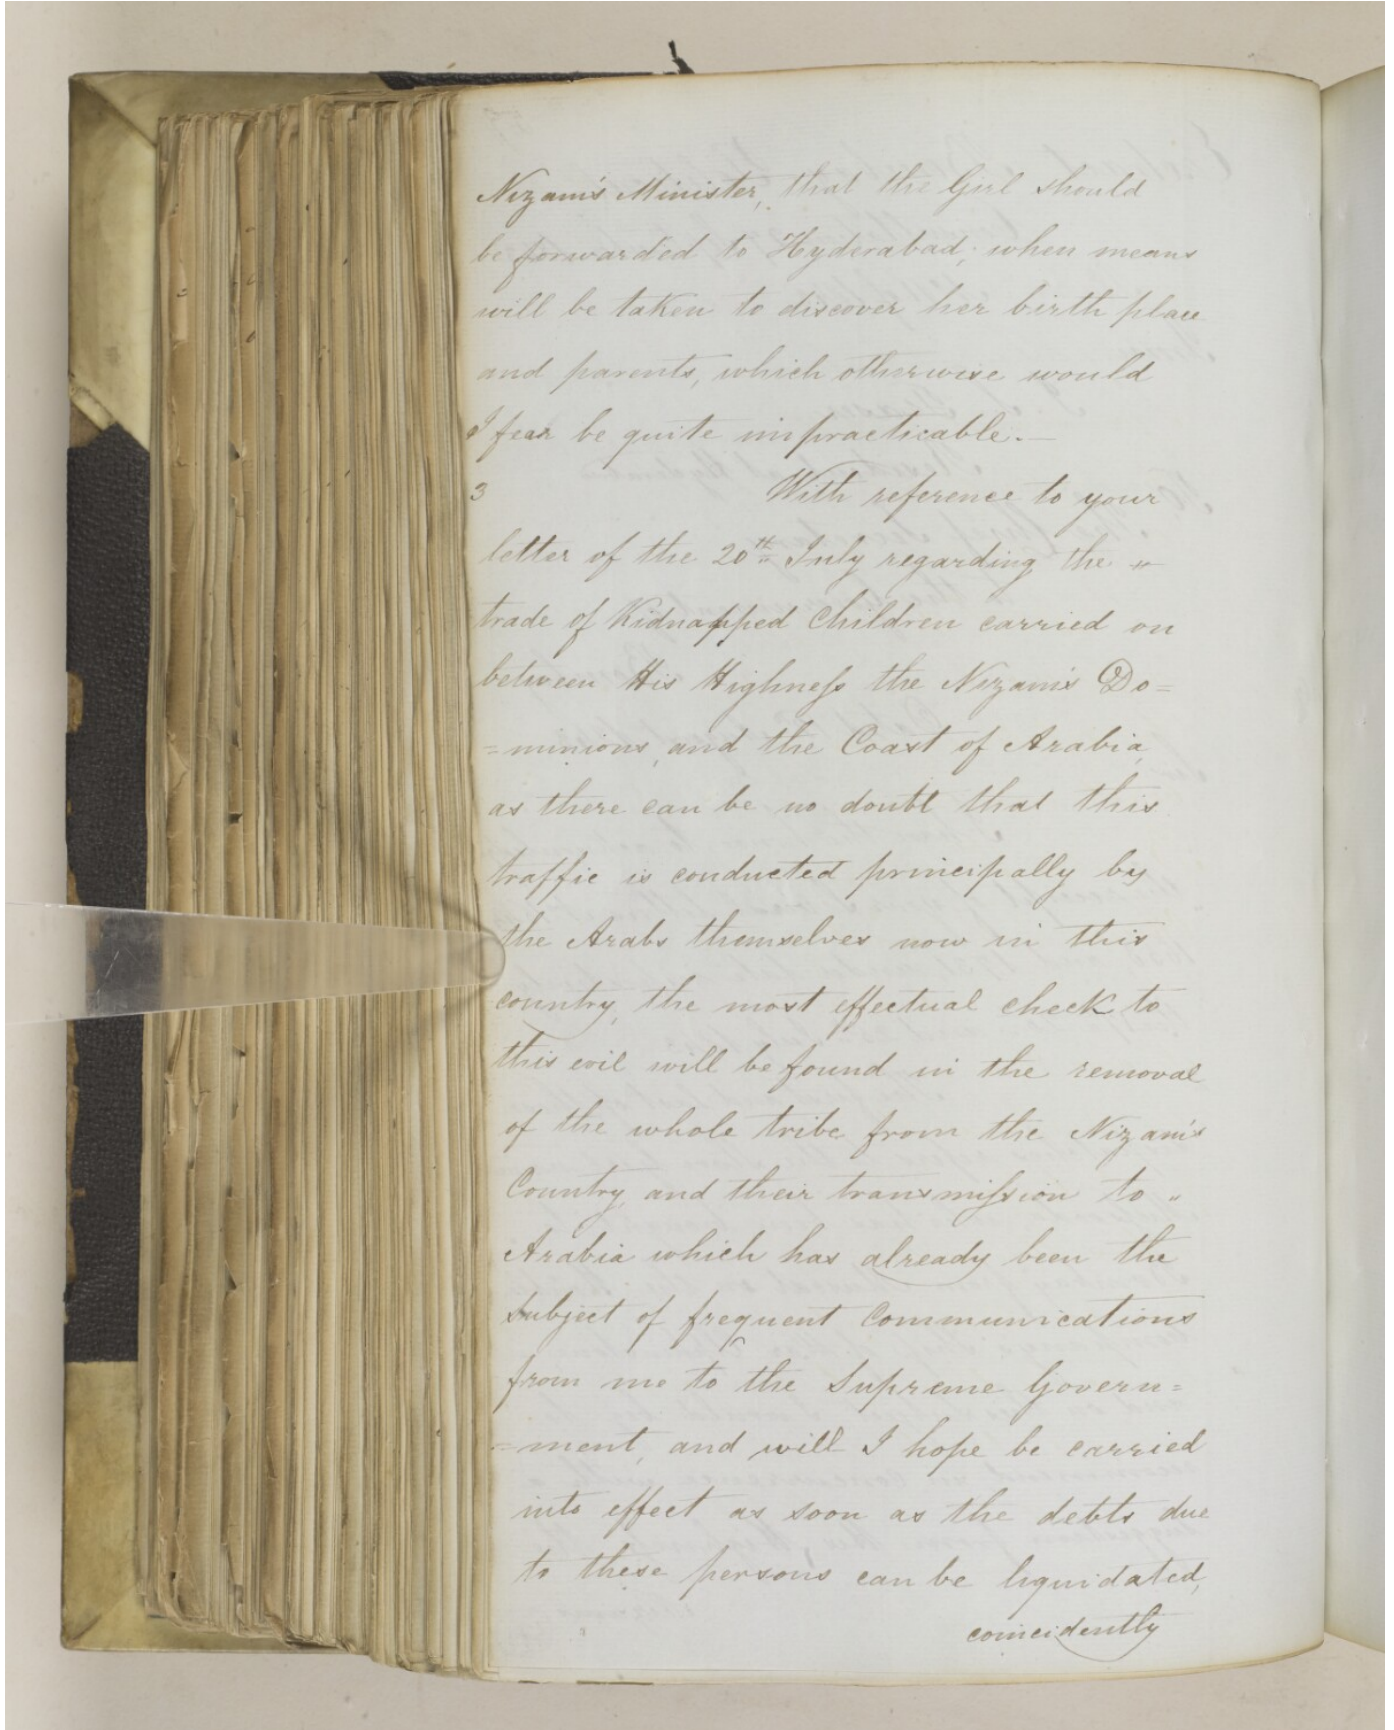 Nizam's Minister, that the Girl should
be forwarded to Hyderabad, when means
will be taken to discover her birth place
and parents, which otherwise would
I fear be quite impracticable. —
3 With reference to your
letter of the 20th July regarding the "
trade of Kidnapped Children carried on
between His Highneſs the Nizam's Do=
=minions, and the Coast of Arabia,
as there can be no doubt that this
traffic is conducted principally by
the Arabs themselves now in this
country, the most effectual check to
this evil will be found in the removal
of the whole tribe from the Nizam's
Country, and their transmiſsion to "
Arabia which has already been the
subject of frequent Communications
from me to the Supreme Govern=
=ment, and will I hope be carried
into effect as soon as the debts due
to these persons can be liquidated,
coincidently